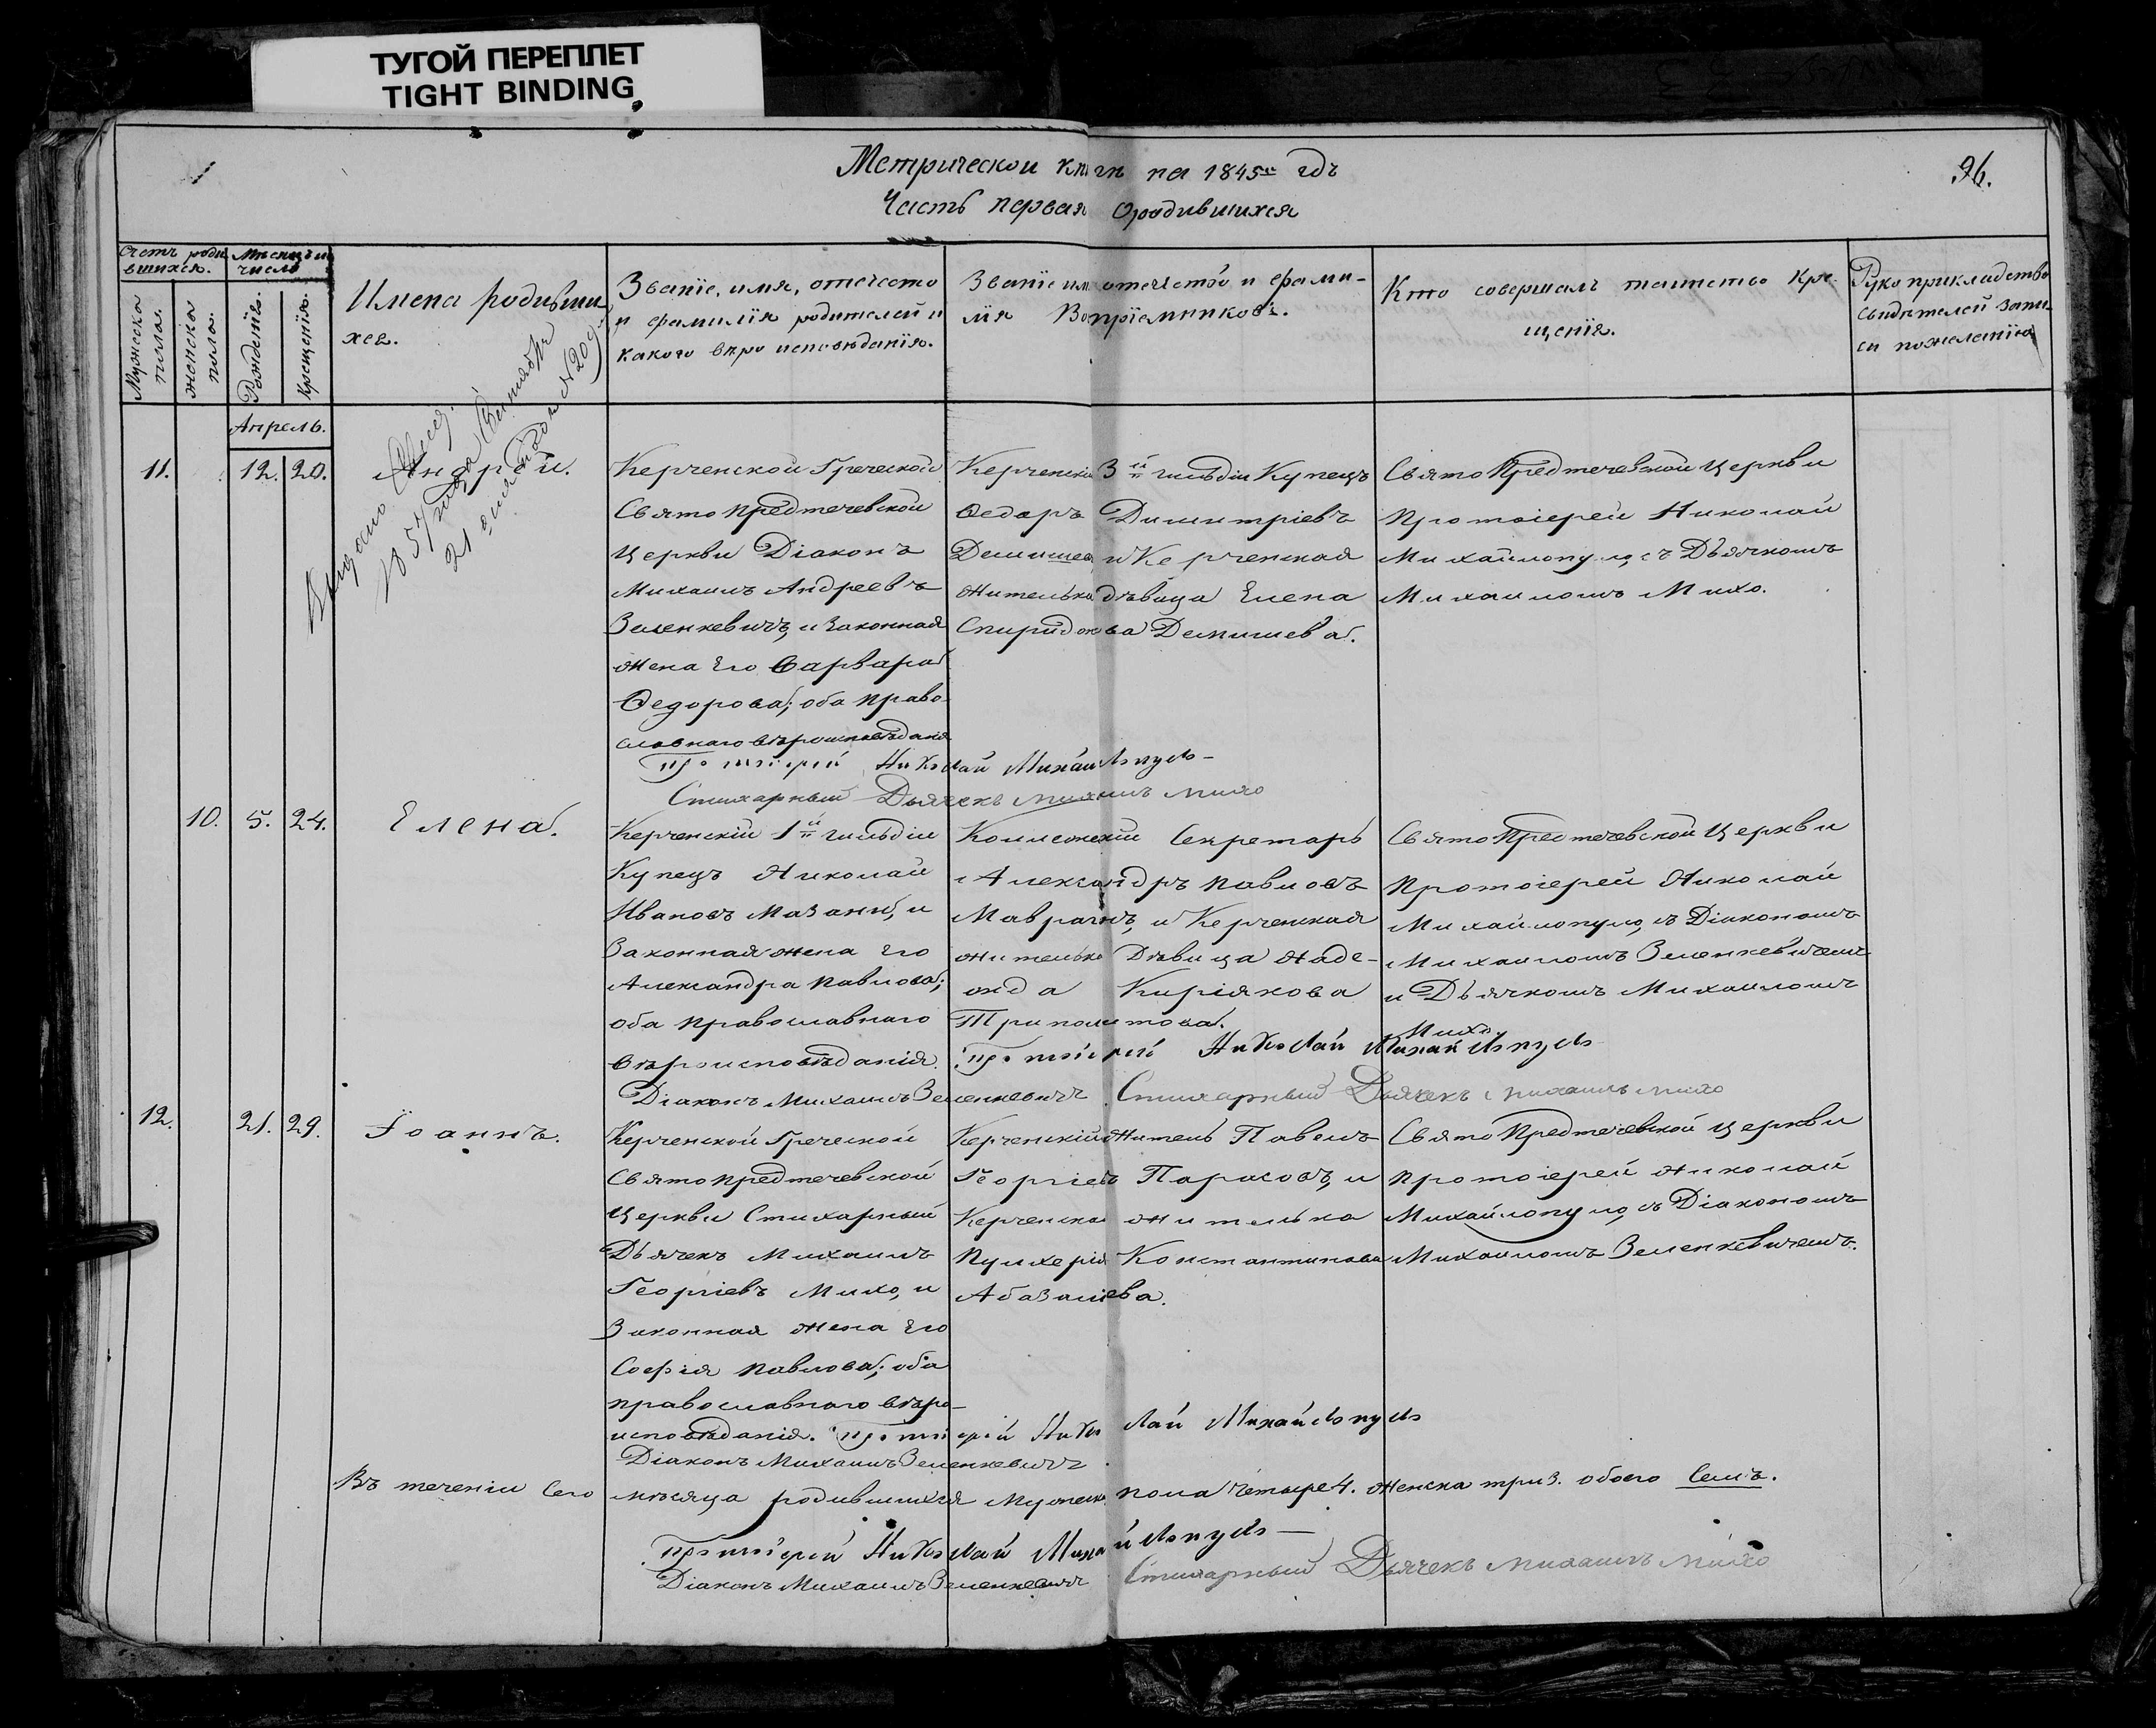 ТУГОЙ ПЕРЕПЛЕТ
TIGHT BINDING
Метрической книги на 1845й годъ
96.
Часть первая о родившихся
Счетъ роди
вшихся.
Мужеска
пола.
женска
пола.
Мѣсяцъ и
число
Рожденіе.
Крещенія.
Имена родивши
хся.
Званіе, имя, отечество
и фамилія родителей и
какого вѣро исповѣданія.
Званіе имя отечество и фами-
лія Воспріемниковъ.
Кто совершалъ таинство кре-
щенія.
Рукоприкладство
свидѣтелей запи-
си по желанію
Апрель.
11.
12. 20.
Андрей.
Выдано
1857 года Сентября
21 дня № 209
Керченской Греческой
Свято Предтечевской
Церкви Діаконъ
Михаилъ Андреевъ
Зеленкевичъ, и законная
жена Его Варвара
Ѳедорова; оба право-
славнаго вѣроисповѣданія
Керченскій 3й гильдіи Купецъ
Ѳедоръ Димитріевъ
и Керченская
жителька дѣвица Елена
Спиридонова
Свято Предтечевской Церкви
Протоіерей Николай
Михайлопуло, съ Дьячкомъ
Михаиломъ Михо.
Протоіерей Николай Михайлопуло
Стихарный Дьячекъ Михаилъ Михо
10.
5. 24.
Елена.
Керченскій 1й гильдіи
Купецъ Николай
Ивановъ Мазани, и
Законная жена Его
Александра Павлова;
оба Православнаго
вѣроисповѣданія.
Коллежскій Секретарь
Александръ Павловъ
и Керченская
жителька Дѣвица Наде-
жда Киріякова
Триполитова.
Свято Предтечевской Церкви
Протоіерей Николай
Михайлопуло, съ Діакономъ
Михаиломъ Зеленкевичемъ
и Дьячкомъ Михаиломъ
Михо.
Протоіерей Николай Михайлопуло
Діаконъ Михаилъ Зеленкевичъ Стихарный Дьячекъ Михаилъ Михо
12.
21. 29.
Іоаннъ.
Керченской Греческой
Свято Предтечевской
Церкви Стихарный
Дьячекъ Михаилъ
Георгіевъ Михо, и
Законная жена Его
Софія Павлова; оба
православнаго вѣро-
исповѣданія.
Керченскій житель Павелъ
Георгіевъ Парасовъ, и
Керченская жителька
Пулхерія Константинова
Абазаліева.
Свято Предтечевской Церкви
Протоіерей Николай
Михайлопуло, съ Діакономъ
Михаиломъ Зеленкевичемъ.
Протоіерей Николай Михайлопуло
Діаконъ Михаилъ Зеленкевичъ
Въ теченіи Сего мѣсяца родившихся Мужеска пола четыре 4. Женска три 3. обоего Семь.
Протоіерей Николай Михайлопуло
Діаконъ Михаилъ Зеленкевичъ Стихарный Дьячекъ Михаилъ Михо